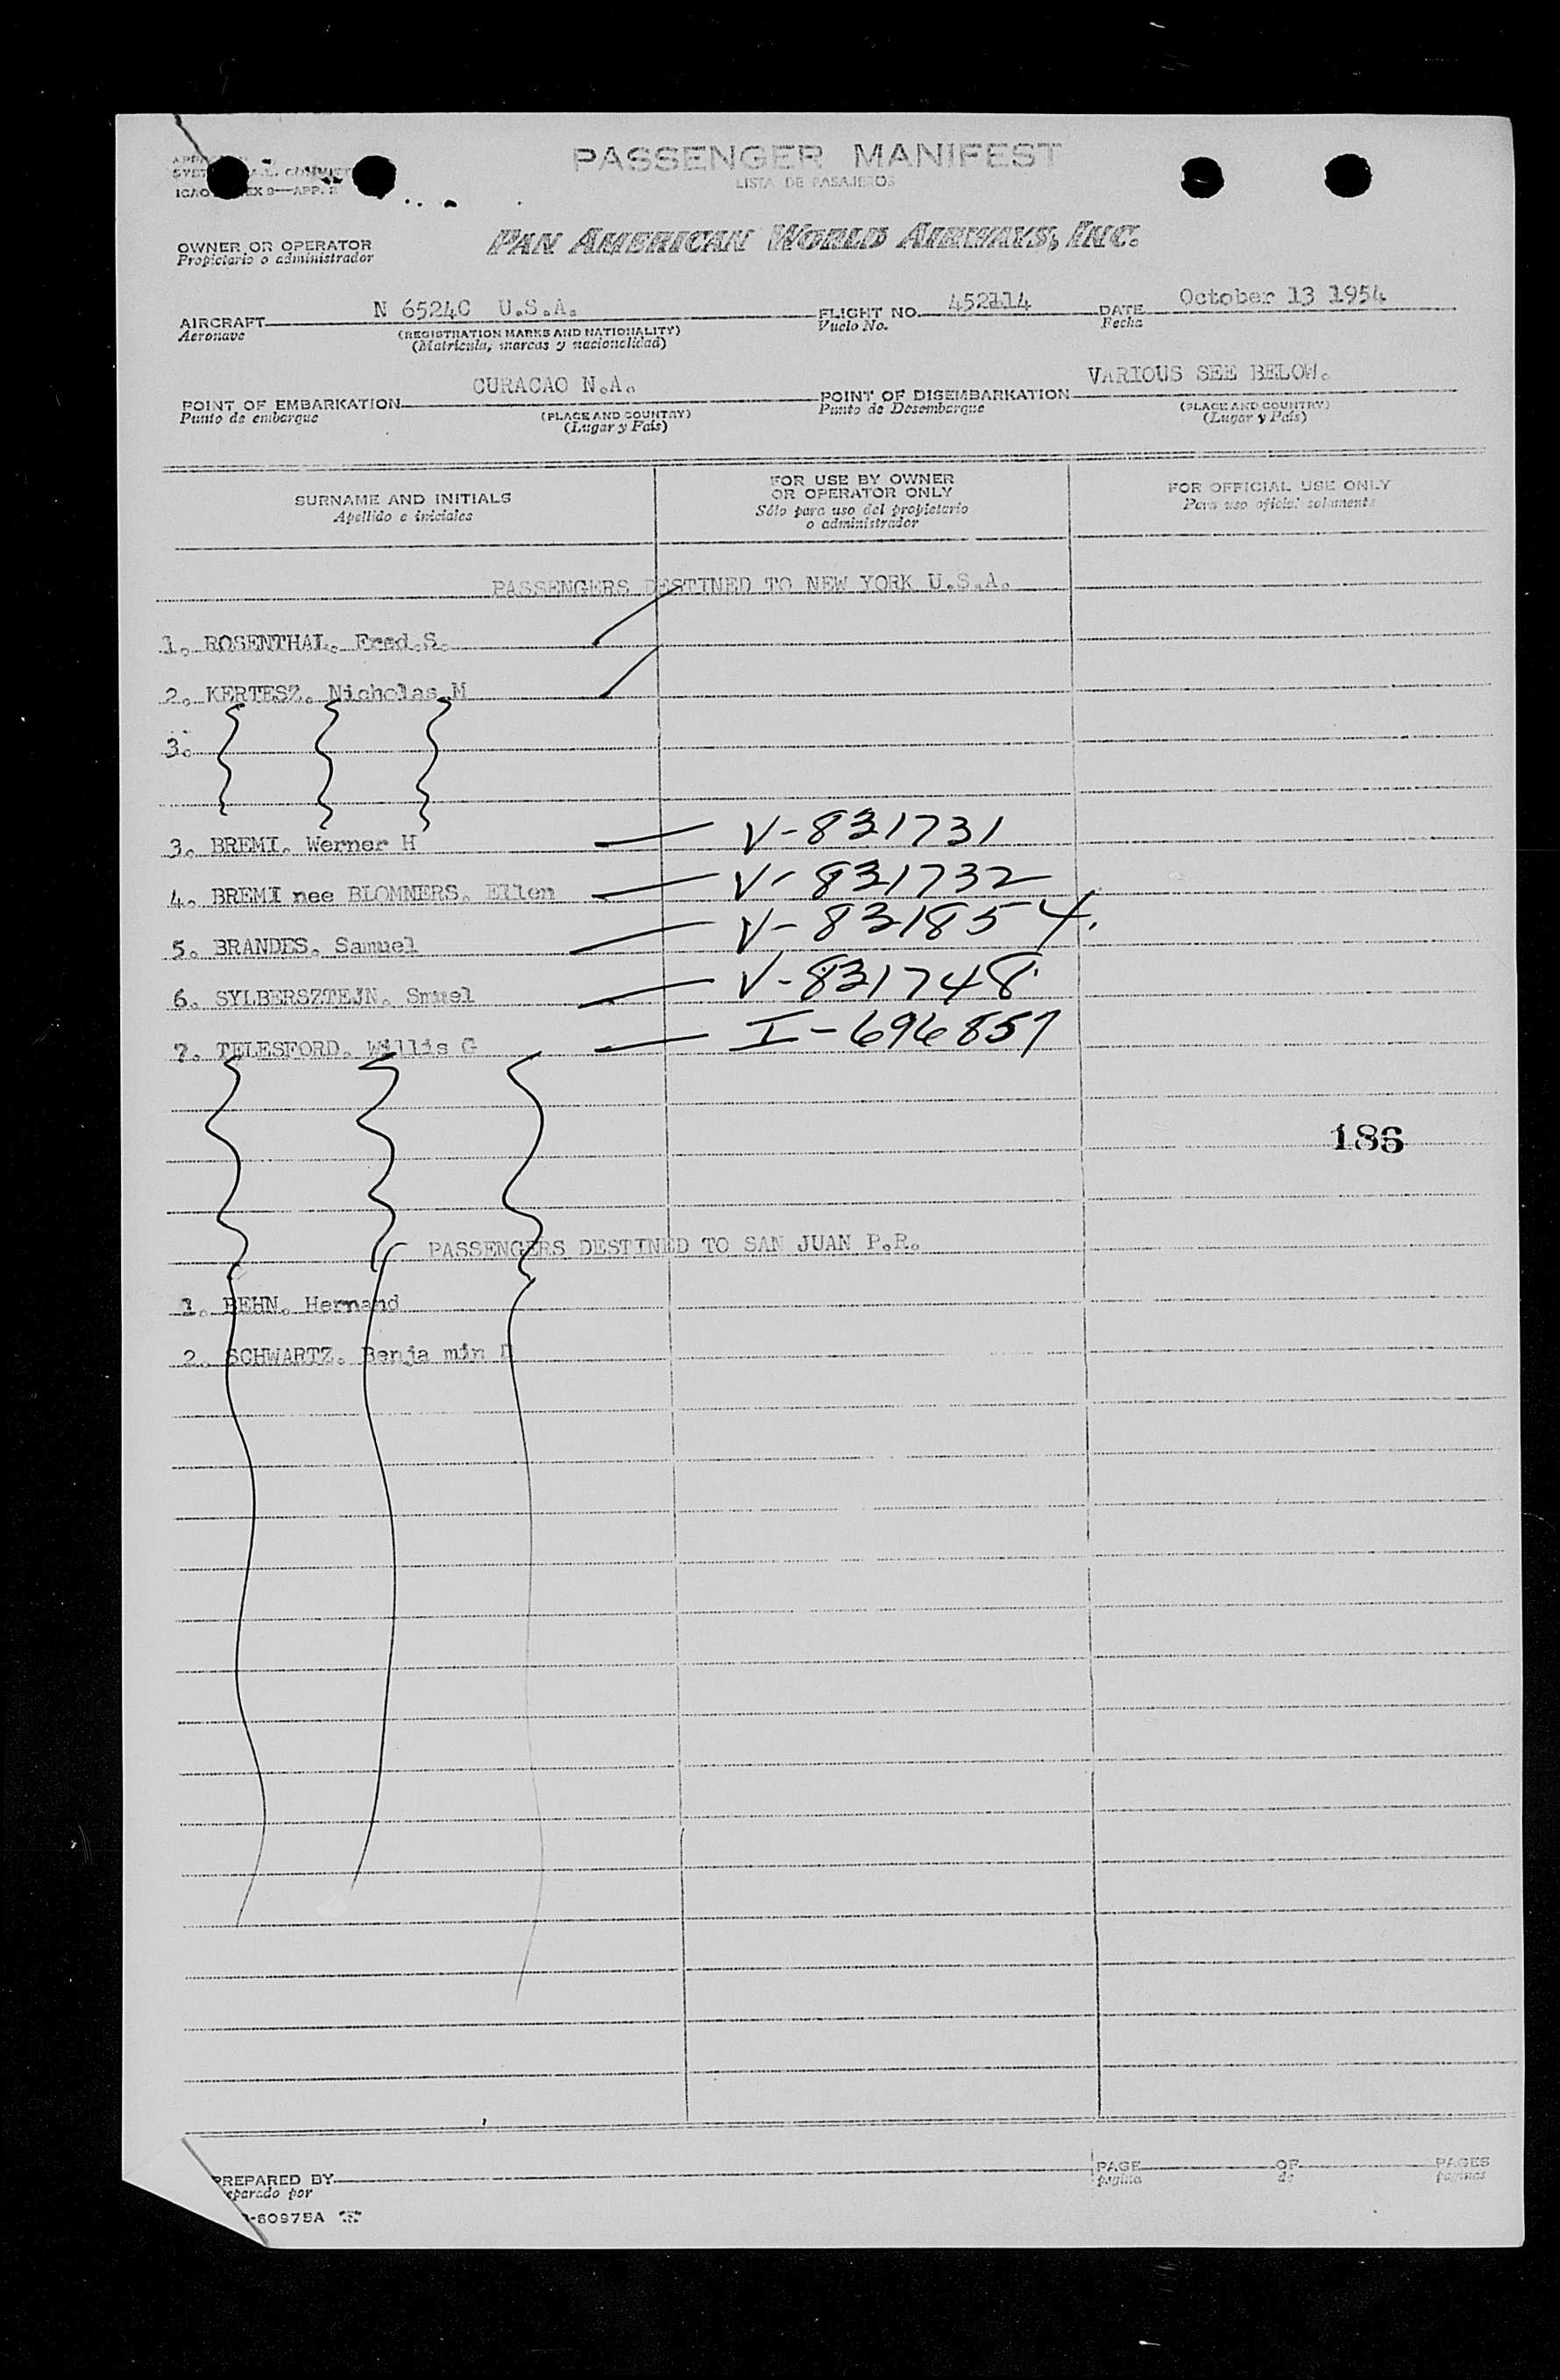 PASSENGER MANIFEST
LISTA DE PASAJEROS
OWNER OR OPERATOR
Propietario o administrador
PAN AMERICAN WORLD AIRWAYS, INC.
AIRCRAFT N 6524C U.S.A. FLIGHT NO. 452114 DATE October 13 1954
Aeronave (REGISTRATION MARKS AND NATIONALITY) Vuelo No. Fecha
(Matrícula, marcas y nacionalidad)
POINT OF EMBARKATION CURACAO N.A. POINT OF DISEMBARKATION VARIOUS SEE BELOW.
Punto de embarque (PLACE AND COUNTRY) Punto de Desembarque (PLACE AND COUNTRY)
(Lugar y País) (Lugar y País)
SURNAME AND INITIALS
Apellido e iniciales
FOR USE BY OWNER
OR OPERATOR ONLY
Sólo para uso del propietario
o administrador
FOR OFFICIAL USE ONLY
Para uso oficial solamente
PASSENGERS DESTINED TO NEW YORK U.S.A.
1. ROSENTHAL. Fred.S.
2. KERTESZ. Nicholas M
3.
3. BREMI. Werner H V-831731
4. BREMI nee BLOMNERS. Ellen V-831732
5. BRANDES. Samuel V-831854.
6. SYLBERSZTEJN. Smuel V-831748
7. TELESFORD. Willis G I-696857
186
PASSENGERS DESTINED TO SAN JUAN P.R.
1. BEHN. Hernand
2. SCHWARTZ. Benja min
PREPARED BY PAGE OF PAGES
eparado por página de páginas
-60975A